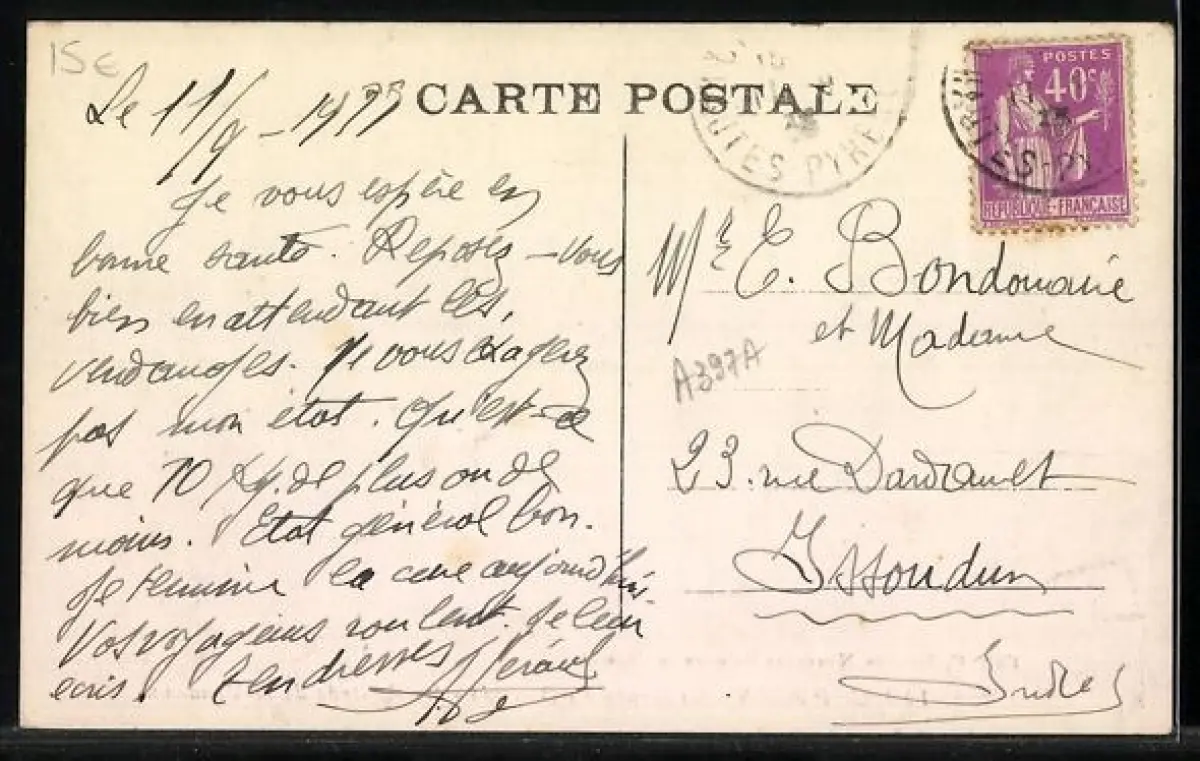 15€
Le 11/9 - 1933
CARTE POSTALE
POSTES
40c
RÉPUBLIQUE-FRANÇAISE
Je vous espère en
bonne santé. Reposez-vous
bien en attendant les
vendanges. Ne vous exagérez
pas mon état. Qu'est-ce
que 10 Kg. de plus ou de
moins. Etat général bon.
Je termine la cure aujourd'hui
Vos voyageurs roulent. Je leur
écris. Tendresses
Mr E. Bondonaire
et Madame
A397A
23. rue Dardault
Issoudun
Indre